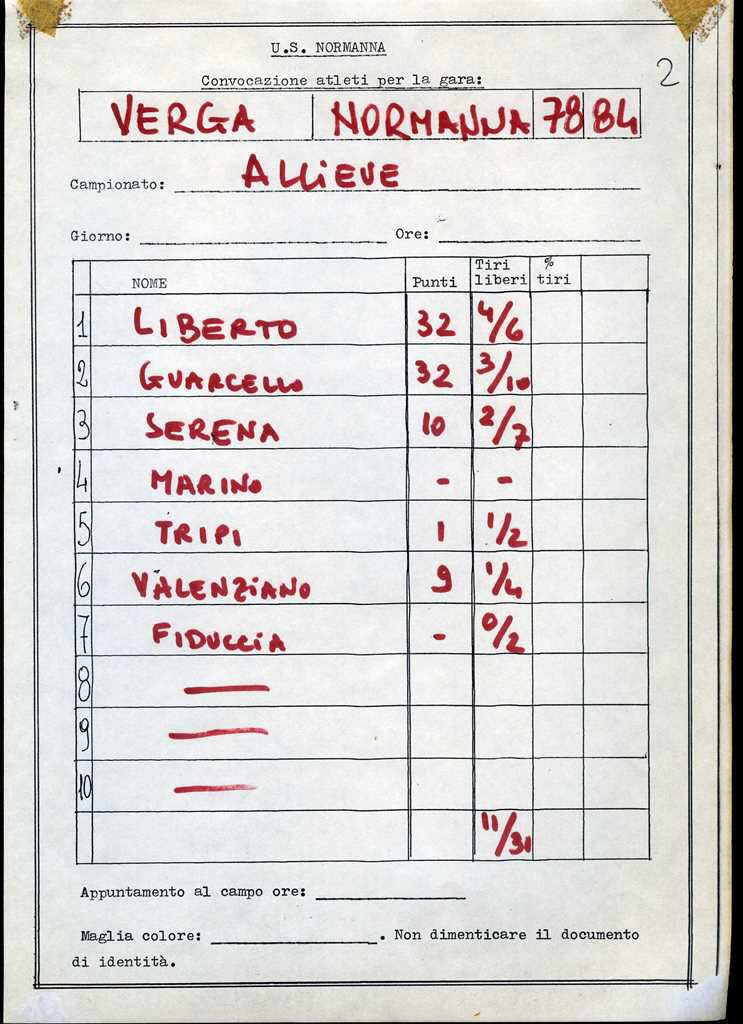 U.S. NORMANNA
Convocazione atleti per la gara:
2
VERGA NORMANNA 78 84
Campionato: ALLIEVE
Giorno: Ore:
NOME Punti Tiri liberi % tiri
1 LIBERTO 32 4/6
2 GUARCELLO 32 3/10
3 SERENA 10 2/7
4 MARINO - -
5 TRIPI 1 1/2
6 VALENZIANO 9 1/4
7 FIDUCCIA - 0/2
8
9
10
11/31
Appuntamento al campo ore:
Maglia colore: . Non dimenticare il documento
di identità.